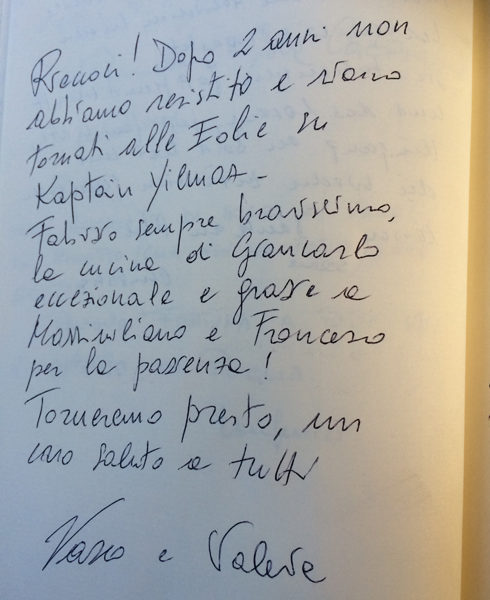 Rieccoci! Dopo 2 anni non
abbiamo resistito e siamo
tornati alle Eolie su
Kaptain Yilmaz -
Fabrizio sempre bravissimo,
la cucina di Giancarlo
eccezionale e grazie a
Massimiliano e Francesco
per la pazienza!
Torneremo presto, un
caro saluto a tutti
Vasco e Valeria